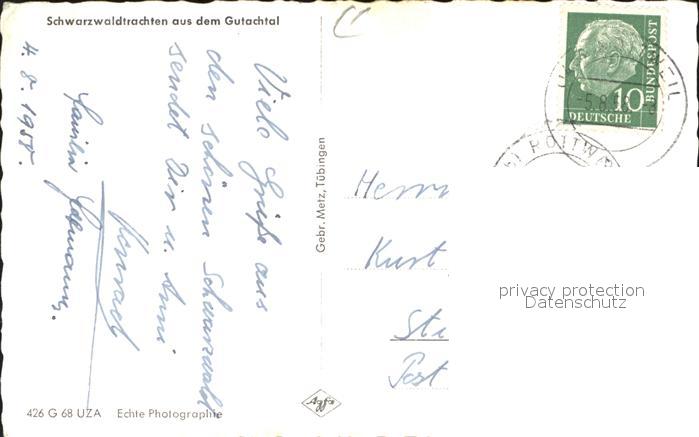 Schwarzwaldtrachten aus dem Gutachtal
4. 8. 1958.
Viele Grüße aus
den schönen Schwarzwald
sendet Dir u. Anni
Konrad
Familie
Gebr. Metz, Tübingen
DEUTSCHE
BUNDESPOST
10
-5.8.5
ROTTW
Herrn
Kurt
St
Post
privacy protection
Datenschutz
426 G 68 UZA Echte Photographie
Agfa